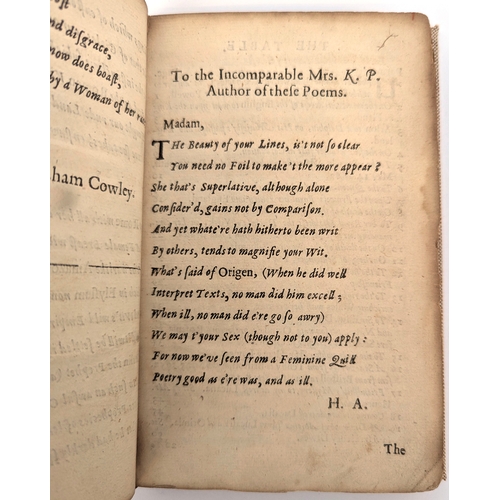 and disgrace,
now does boast,
by a Woman of her
ham Cowley.
To the Incomparable Mrs. K. P.
Author of theſe Poems.
Madam,
THe Beauty of your Lines, is't not ſo clear
You need no Foil to make't the more appear?
She that's Superlative, although alone
Conſider'd, gains not by Compariſon.
And yet whate're hath hitherto been writ
By others, tends to magnifie your Wit.
What's ſaid of Origen, (When he did well
Interpret Texts, no man did him excell;
When ill, no man did e're go ſo awry)
We may t'your Sex (though not to you) apply:
For now we've ſeen from a Feminine Quill
Poetry good as e're was, and as ill.
H. A.
The